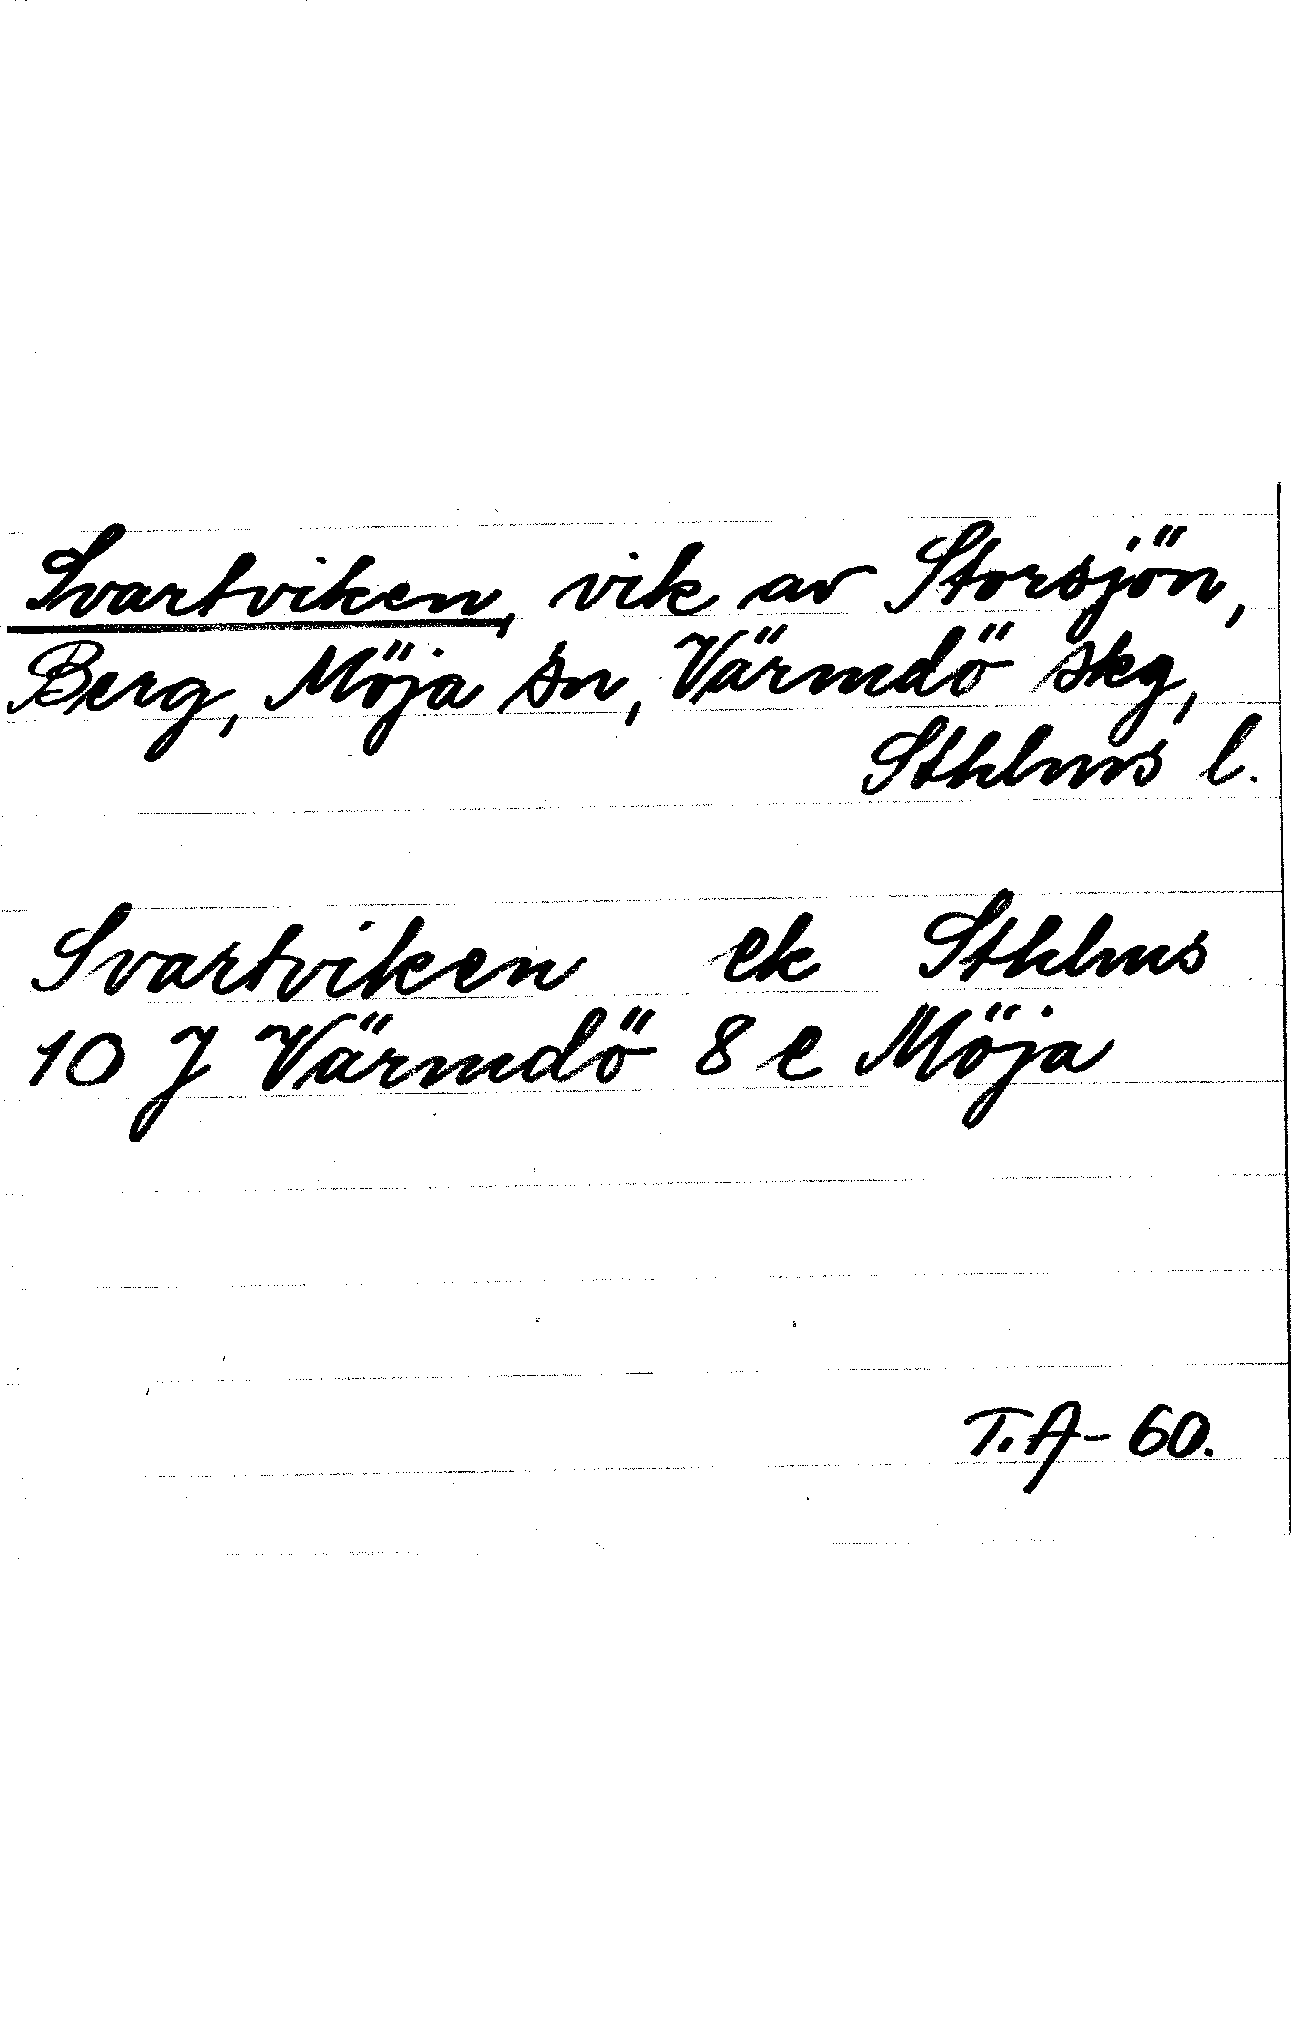 Svartviken, vik av Storsjön,
Berg, Möja sn, Värmdö skg,
Sthlms l.
Svartviken ek Sthlms
10 J Värmdö 8 e Möja
T.A-60.